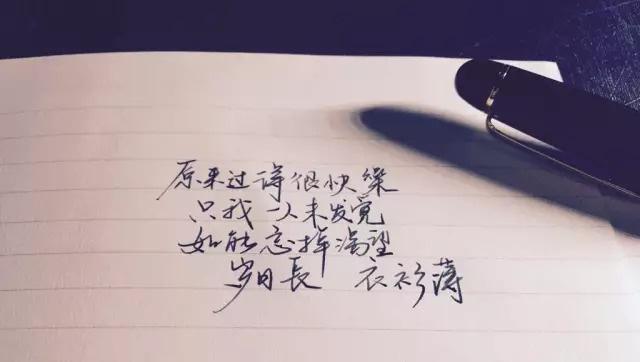 原来过得很快樂
只我一人未发觉
如能忘掉渴望
岁月長 衣衫薄